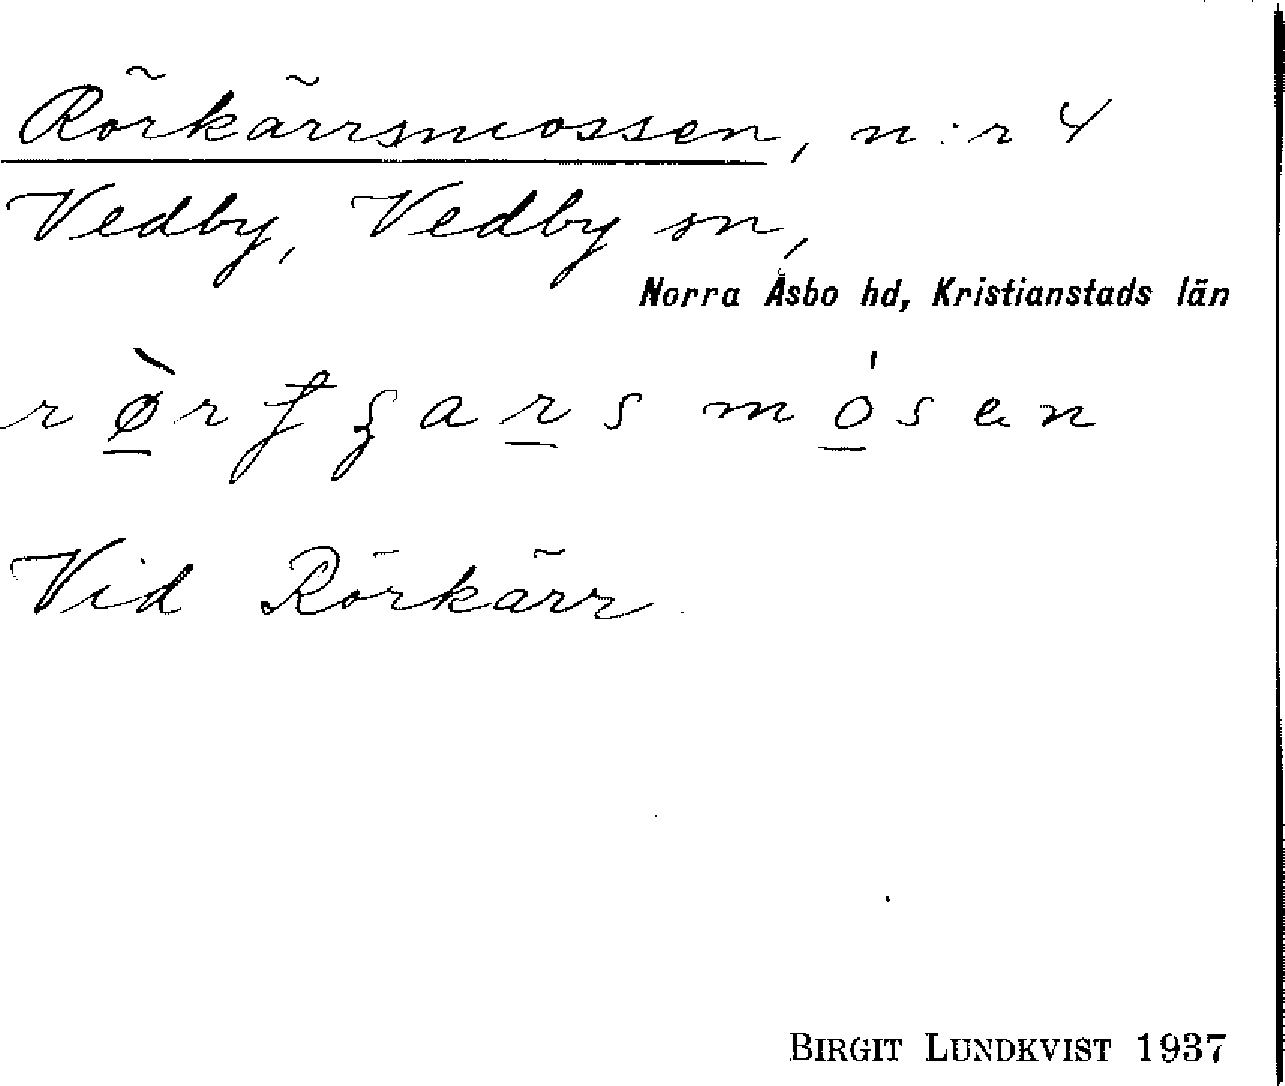 Rörkärrsmossen, n:r 4
Vedby, Vedby sn,
Norra Åsbo hd, Kristianstads län
Vid Rörkärr.
BIRGIT LUNDKVIST 1937